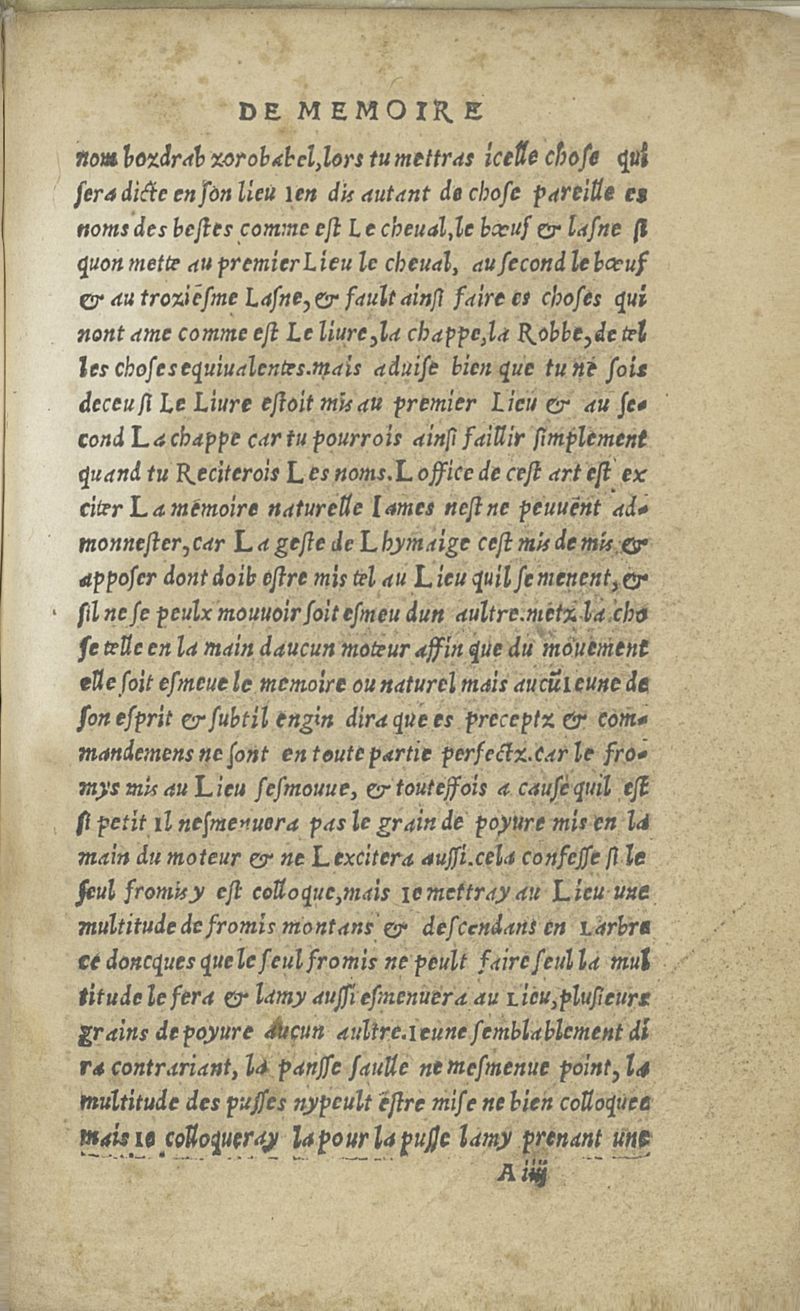 DE MEMOIRE
nom bozdrab zorobabel, lors tu mettras icelle chose qui
sera dicte en son lieu Ien dis autant de chose pareille es
noms des bestes comme est Le cheual, le bœuf & lasne si
quon mette au premier Lieu le cheual, au second le bœuf
& au troziẽsme Lasne, & fault ainsi faire es choses qui
nont ame comme est Le liure, la chappe, la Robbe, de tel
les choses equiualentes. mais aduise bien que tu ne sois
deceu si Le Liure estoit mis au premier Lieu & au se-
cond La chappe car tu pourrois ainsi faillir simplement
quand tu Reciterois Les noms. Loffice de cest art est ex
citer La memoire naturelle Iames nest ne peuuẽnt ad-
monnester, car La geste de Lhymaige cest mis de mis &
apposer dont doib estre mis tel au Lieu quil se menent, &
sil ne se peulx mouuoir soit esmeu dun aultre. metz la cho
se telle en la main daucun moteur affin que du mouuement
elle soit esmeue le memoire ou naturel mais aucũ ieune de
son esprit & subtil engin dira que es preceptz & com-
mandemens ne sont en toute partie perfectz. car le fro-
mys mis au Lieu sesmouue, & touteffois a cause quil est
si petit il nesmenuera pas le grain de poyure mis en la
main du moteur & ne Lexcitera aussi. cela confesse si le
seul fromis y est colloque, mais ie mettray au Lieu une
multitude de fromis montans & descendans en Larbre
ce doncques que le seul fromis ne peult faire seul la mul
titude le fera & lamy aussi esmenuera au Lieu, plusieurs
grains de poyure aucun aultre. ieune semblablement di
ra contrariant, la pansse saulle ne mesmenue point, la
multitude des pusses ny peult ẽstre mise ne bien colloquee
mais ie colloqueray la pour la pusse lamy prenant une
A iiij